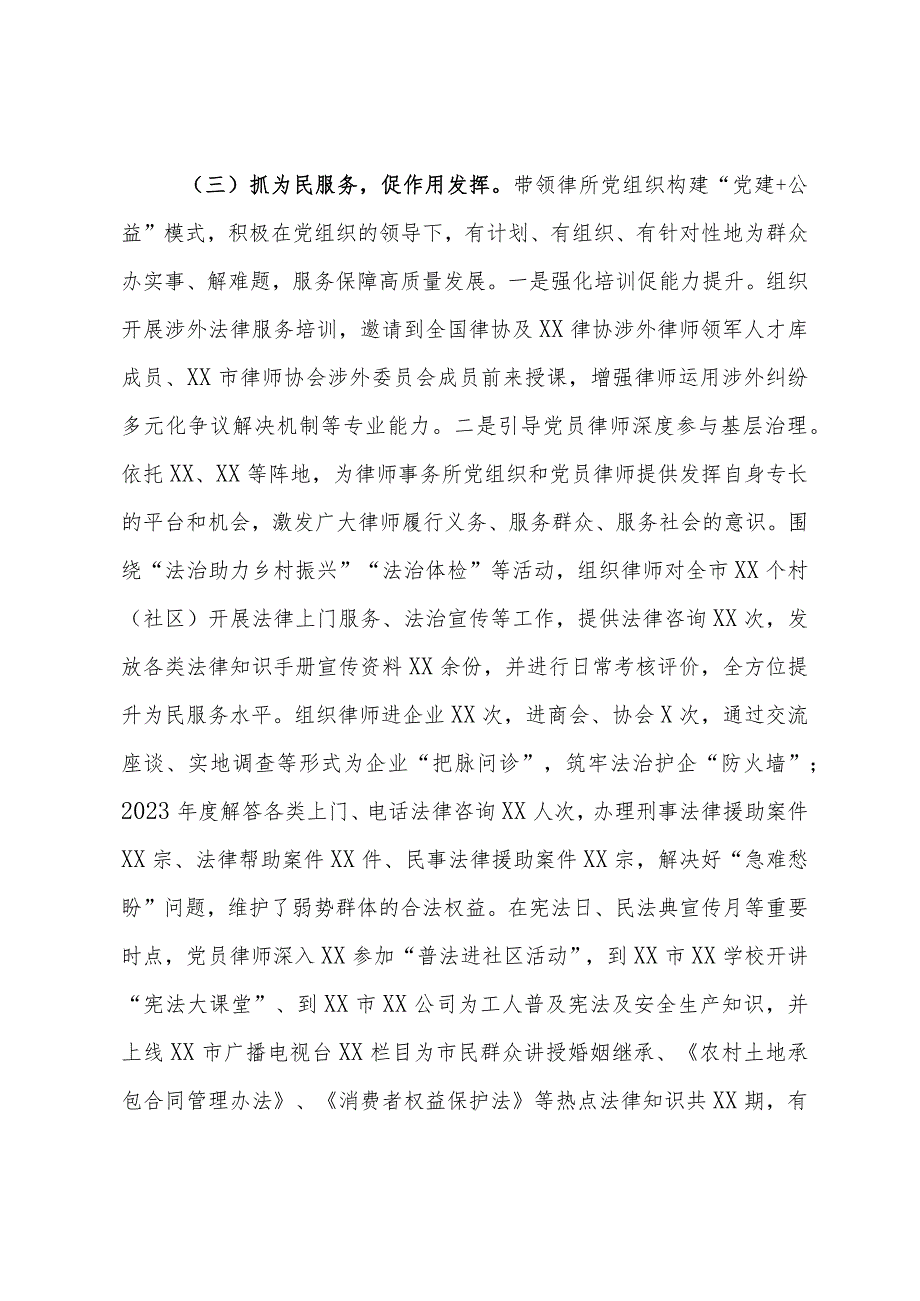 （三）抓为民服务，促作用发挥。带领律所党组织构建“党建+公
益”模式，积极在党组织的领导下，有计划、有组织、有针对性地为群众
办实事、解难题，服务保障高质量发展。一是强化培训促能力提升。组织
开展涉外法律服务培训，邀请到全国律协及XX律协涉外律师领军人才库
成员、XX市律师协会涉外委员会成员前来授课，增强律师运用涉外纠纷
多元化争议解决机制等专业能力。二是引导党员律师深度参与基层治理。
依托XX、XX等阵地，为律师事务所党组织和党员律师提供发挥自身专长
的平台和机会，激发广大律师履行义务、服务群众、服务社会的意识。围
绕“法治助力乡村振兴”“法治体检”等活动，组织律师对全市XX个村
（社区）开展法律上门服务、法治宣传等工作，提供法律咨询XX次，发
放各类法律知识手册宣传资料XX余份，并进行日常考核评价，全方位提
升为民服务水平。组织律师进企业XX次，进商会、协会X次，通过交流
座谈、实地调查等形式为企业“把脉问诊”，筑牢法治护企“防火墙”；
2023年度解答各类上门、电话法律咨询XX人次，办理刑事法律援助案件
XX宗、法律帮助案件XX件、民事法律援助案件XX宗，解决好“急难愁
盼”问题，维护了弱势群体的合法权益。在宪法日、民法典宣传月等重要
时点，党员律师深入XX参加“普法进社区活动”，到XX市XX学校开讲
“宪法大课堂”、到XX市XX公司为工人普及宪法及安全生产知识，并
上线XX市广播电视台XX栏目为市民群众讲授婚姻继承、《农村土地承
包合同管理办法》、《消费者权益保护法》等热点法律知识共XX期，有